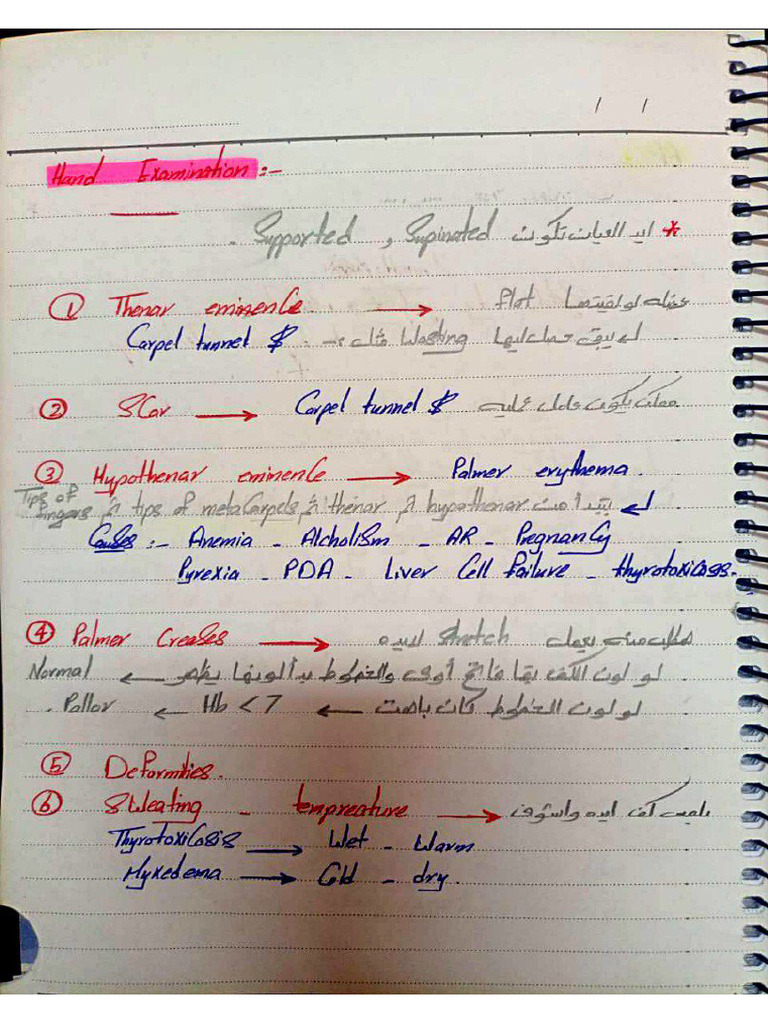 / /
Hand Examination :-
* ايد العيان تكون Supinated و Supported .
① Thenar eminence → flat لو لقيتها
Carpel tunnel $ . :- مثلا Wasting يبقى حصل ليها
② Scar → Carpel tunnel $ ممكن يكون عامل عملية
③ Hypothenar eminence → Palmer erythema .
بتبدأ من hypothenar ثم thenar ثم tips of metaCarpels ثم Tips of fingers
Causes :- Anemia - Alcholism - AR - Pregnancy
Pyrexia - PDA - Liver Cell Failure - thyrotoxicosis .
④ Palmer Creases → هطلب منه يعمل stretch لايده
لو لون الكف بقا فاتح أوى والخطوط بدأ لونها يظهر ← Normal
لو لون الخطوط كان باهت ← Hb < 7 ← Pallor .
⑤ Deformities .
⑥ Sweating - tempreature → بلمس كف ايده واشوف
Thyrotoxicosis → Wet - Warm
Myxedema → Cold - dry .